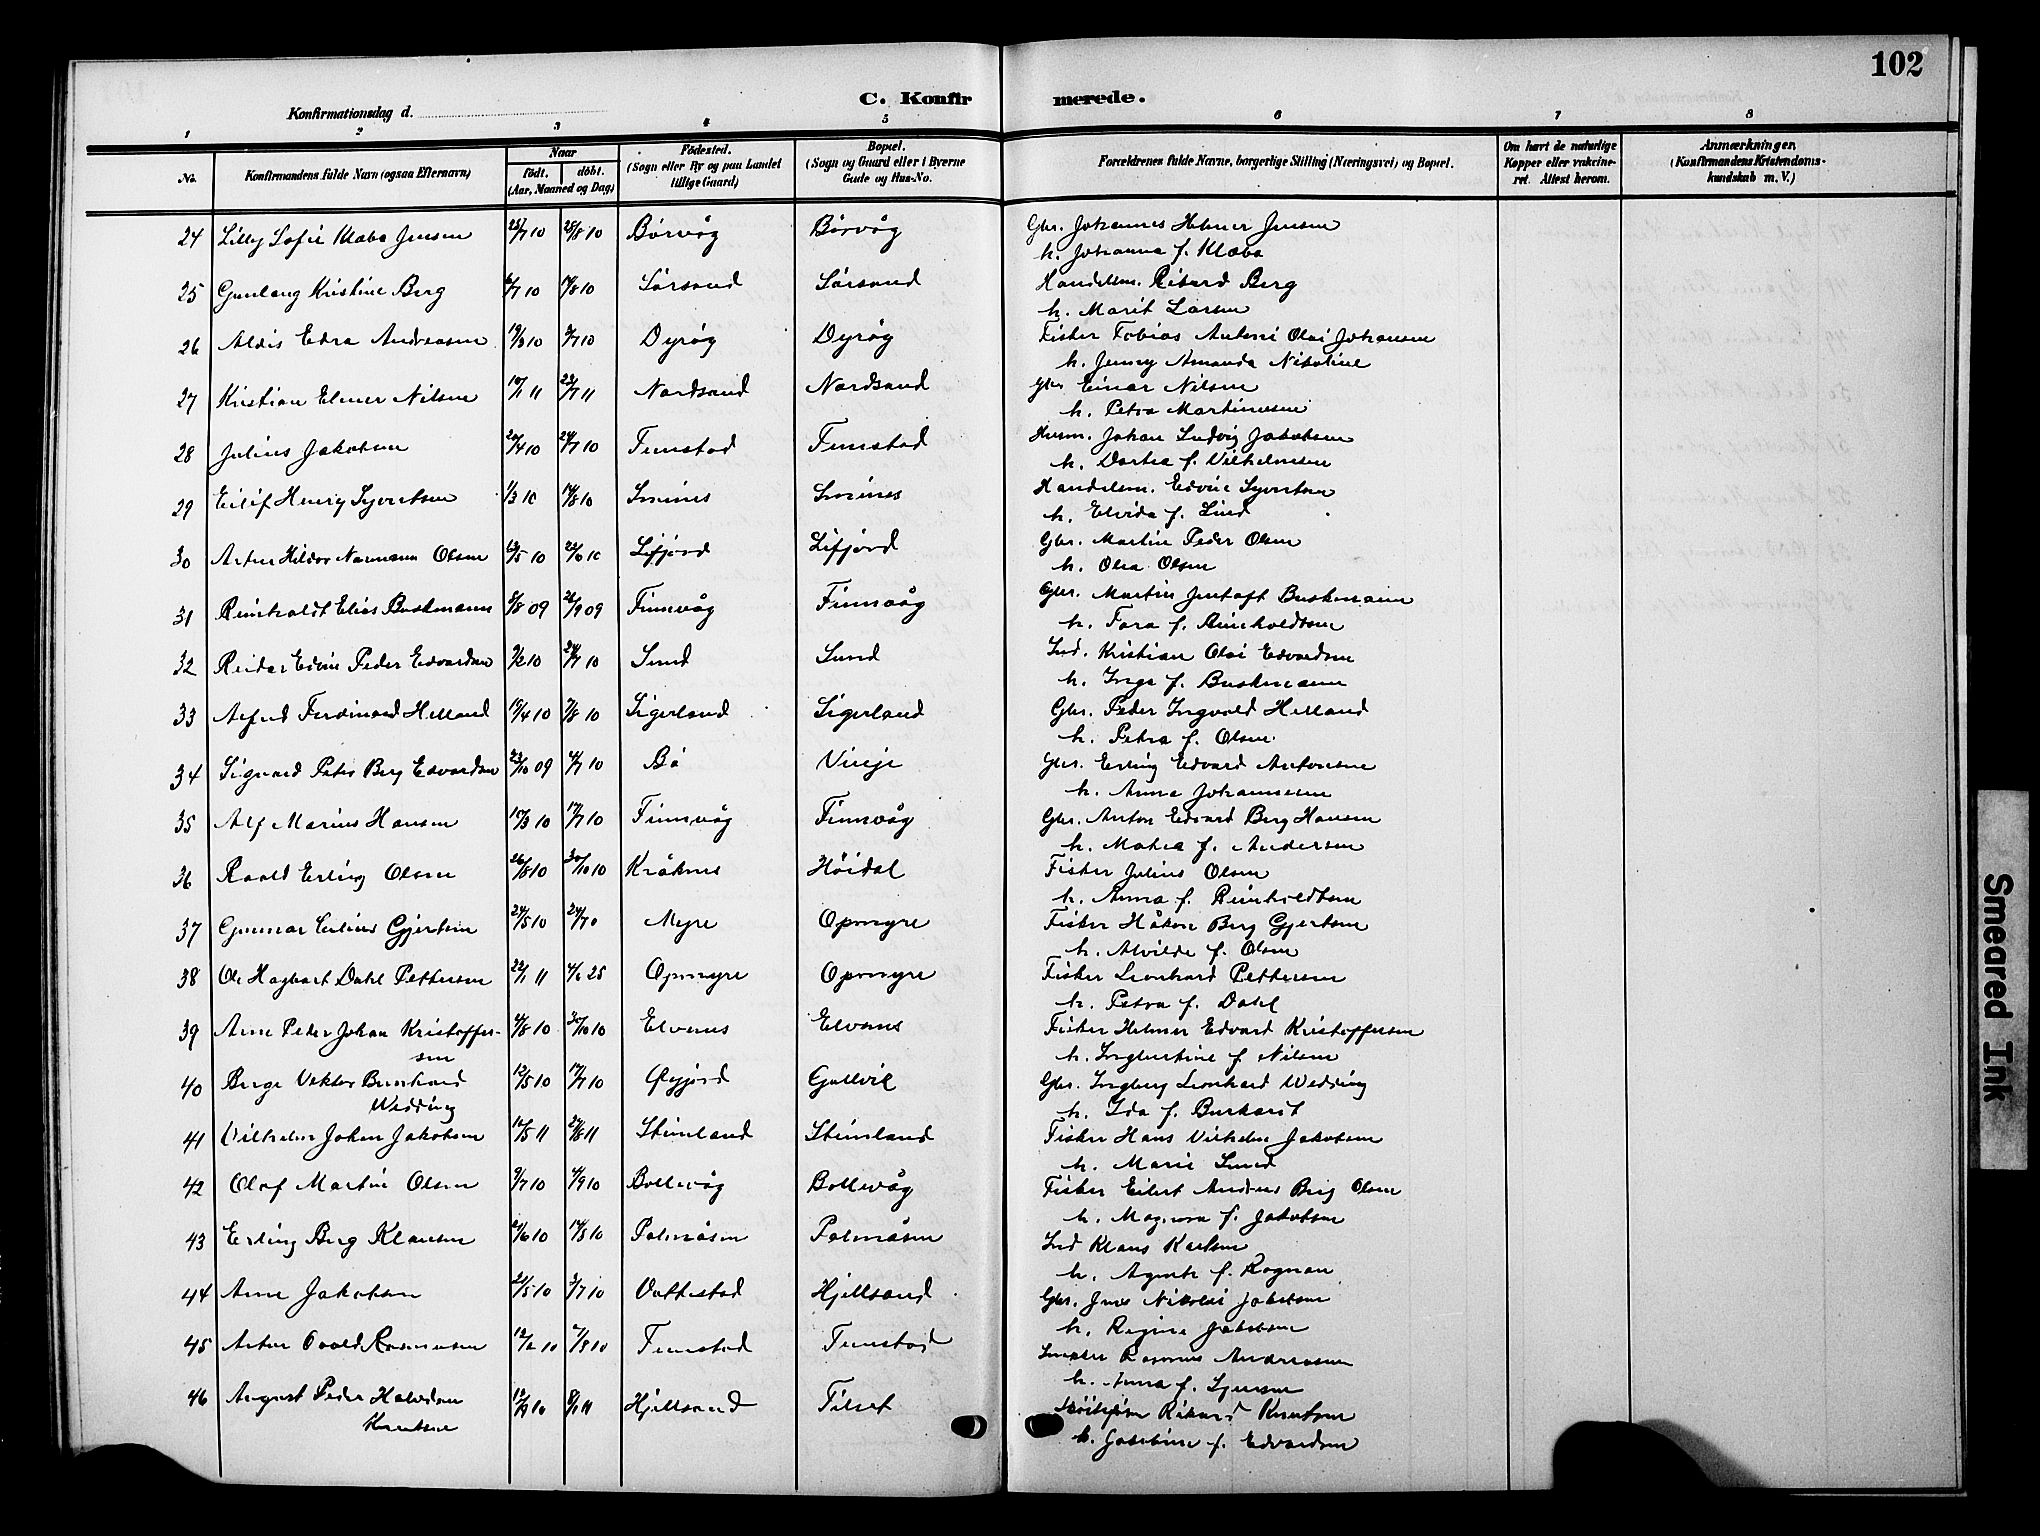 102
C. Konfirmerede.
Konfirmationsdag d.
1 2 3 4 5 6 7 8
No.
Konfirmandens fulde Navn (ogsaa Efternavn)
Naar
födt. döbt.
(Aar, Maaned og Dag)
Födested.
(Sogn eller By og paa Landet
tillige Gaard)
Bopæl.
(Sogn og Gaard eller i Byerne
Gade og Hus-No.
Forældrenes fulde Navne, borgerlige Stilling (Næringsvei) og Bopæl.
Om havt de naturlige
Kopper eller vakcine-
ret. Attest herom.
Anmærkninger.
(Konfirmandens Kristendoms-
kundskab m. V.)
24 Lilly Sofie Klæbo Jensen 25/7 10 28/8 10 Börvåg Börvåg Gbr. Johannes Helmer Jensen
h. Johanna f. Klæbo
25 Gunlaug Kristine Berg 6/7 10 14/8 10 Sörsand Sörsand Handelsm. Rikard Berg
h. Marit Larsen
26 Aldis Edra Andreasen 19/3 10 3/7 10 Dyrög Dyrög Fisker Tobias Antoni Olai Johansen
h. Jenny Amanda Nikoline
27 Kristian Elmer Nilsen 10/1 11 23/7 11 Nordsand Nordsand Gbr. Einar Nilsen
h. Petra Martinusen
28 Julius Jakobsen 20/4 10 24/7 10 Tunstad Tunstad Husm. Johan Ludvig Jakobsen
h. Dortea f. Vilhelmsen
29 Eilif Henry Syvertsen 1/3 10 14/8 10 Smines Smines Handelsm. Edvin Syvertsen
h. Elvida f. Lind
30 Artur Hildor Normann Olsen 13/5 10 Lifjord Lifjord Gbr. Martin Peder Olsen
h. Olea Olsen
31 Reinholdt Elias Buskmann 5/8 09 26/9 09 Finnvåg Finnvåg Gbr. Martin Jentoft Buskmann
h. Tora f. Reinholdtsen
32 Reidar Edvin Peder Edvardsen 9/2 10 24/7 10 Sund Sund Ind. Kristian Olai Edvardsen
h. Inga f. Buskmann
33 Alfred Ferdinand Helland 19/4 10 7/8 10 Sigerland Sigerland Gbr. Peder Ingvald Helland
h. Petra f. Olsen
34 Sigvard Peter Berg Edvardsen 23/10 09 4/7 10 Bö Vinje Gbr. Erling Edvard Antonsen
h. Anna Johannesen
35 Alf Marius Hansen 15/3 10 17/7 10 Finnvåg Finnvåg Gbr. Anton Edvard Berg Hansen
h. Matea f. Andersen
36 Roald Erling Olsen 26/8 10 30/10 10 Kråknes Höidal Fisker Julius Olsen
h. Anna f. Reinholdtsen
37 Gunnar Enlius Gjertsen 24/5 10 24/7 0 Myre Opmyre Fisker Håkon Berg Gjertsen
h. Alvilde f. Olsen
38 Ole Hagbart Dahl Pettersen 22/1 11 Opmyre Opmyre Fisker Leonhard Pettersen
h. Petra f. Dahl
39 Arne Peder Johan Kristoffer-
sen 4/8 10 30/10 10 Elvenes Elvenes Fisker Helmer Edvard Kristoffersen
h. Ingbertine f. Nilsen
40 Birger Viktor Bernhard
Wedding 12/5 10 17/7 10 Gullvik Gbr. Ingberg Leonhard Wedding
h. Ida f. Burhardt
41 Vilhelm Johan Jakobsen 16/5 11 27/8 11 Steinland Steinland Fisker Hans Vilhelm Jakobsen
h. Marie Lund
42 Olaf Martin Olsen 9/7 10 4/9 10 Bollevåg Bollevåg Fisker Eilert Andreas Berg Olsen
h. Magnora f. Jakobsen
43 Erling Berg Klausen 21/6 10 14/8 10 Polmåsen Polmåsen Ind Klaus Karlsen
h. Agnete f. Rognan
44 Arne Jakobsen 21/5 10 3/7 10 Vottestad Hjellsand Gbr. Jens Nikolai Jakobsen
h. Regine Jakobsen
45 Artur Roald Rasmussen Tunstad Tunstad Rasmus Andreassen
h. Anna f.
46 August Peder Halvdan
Knutsen Hjellsand Tilset Rikard Knutsen
h. Josefine f. Edvardsen
Smeared Ink